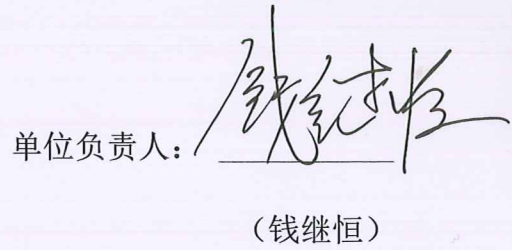 单位负责人：钱继恒
（钱继恒）